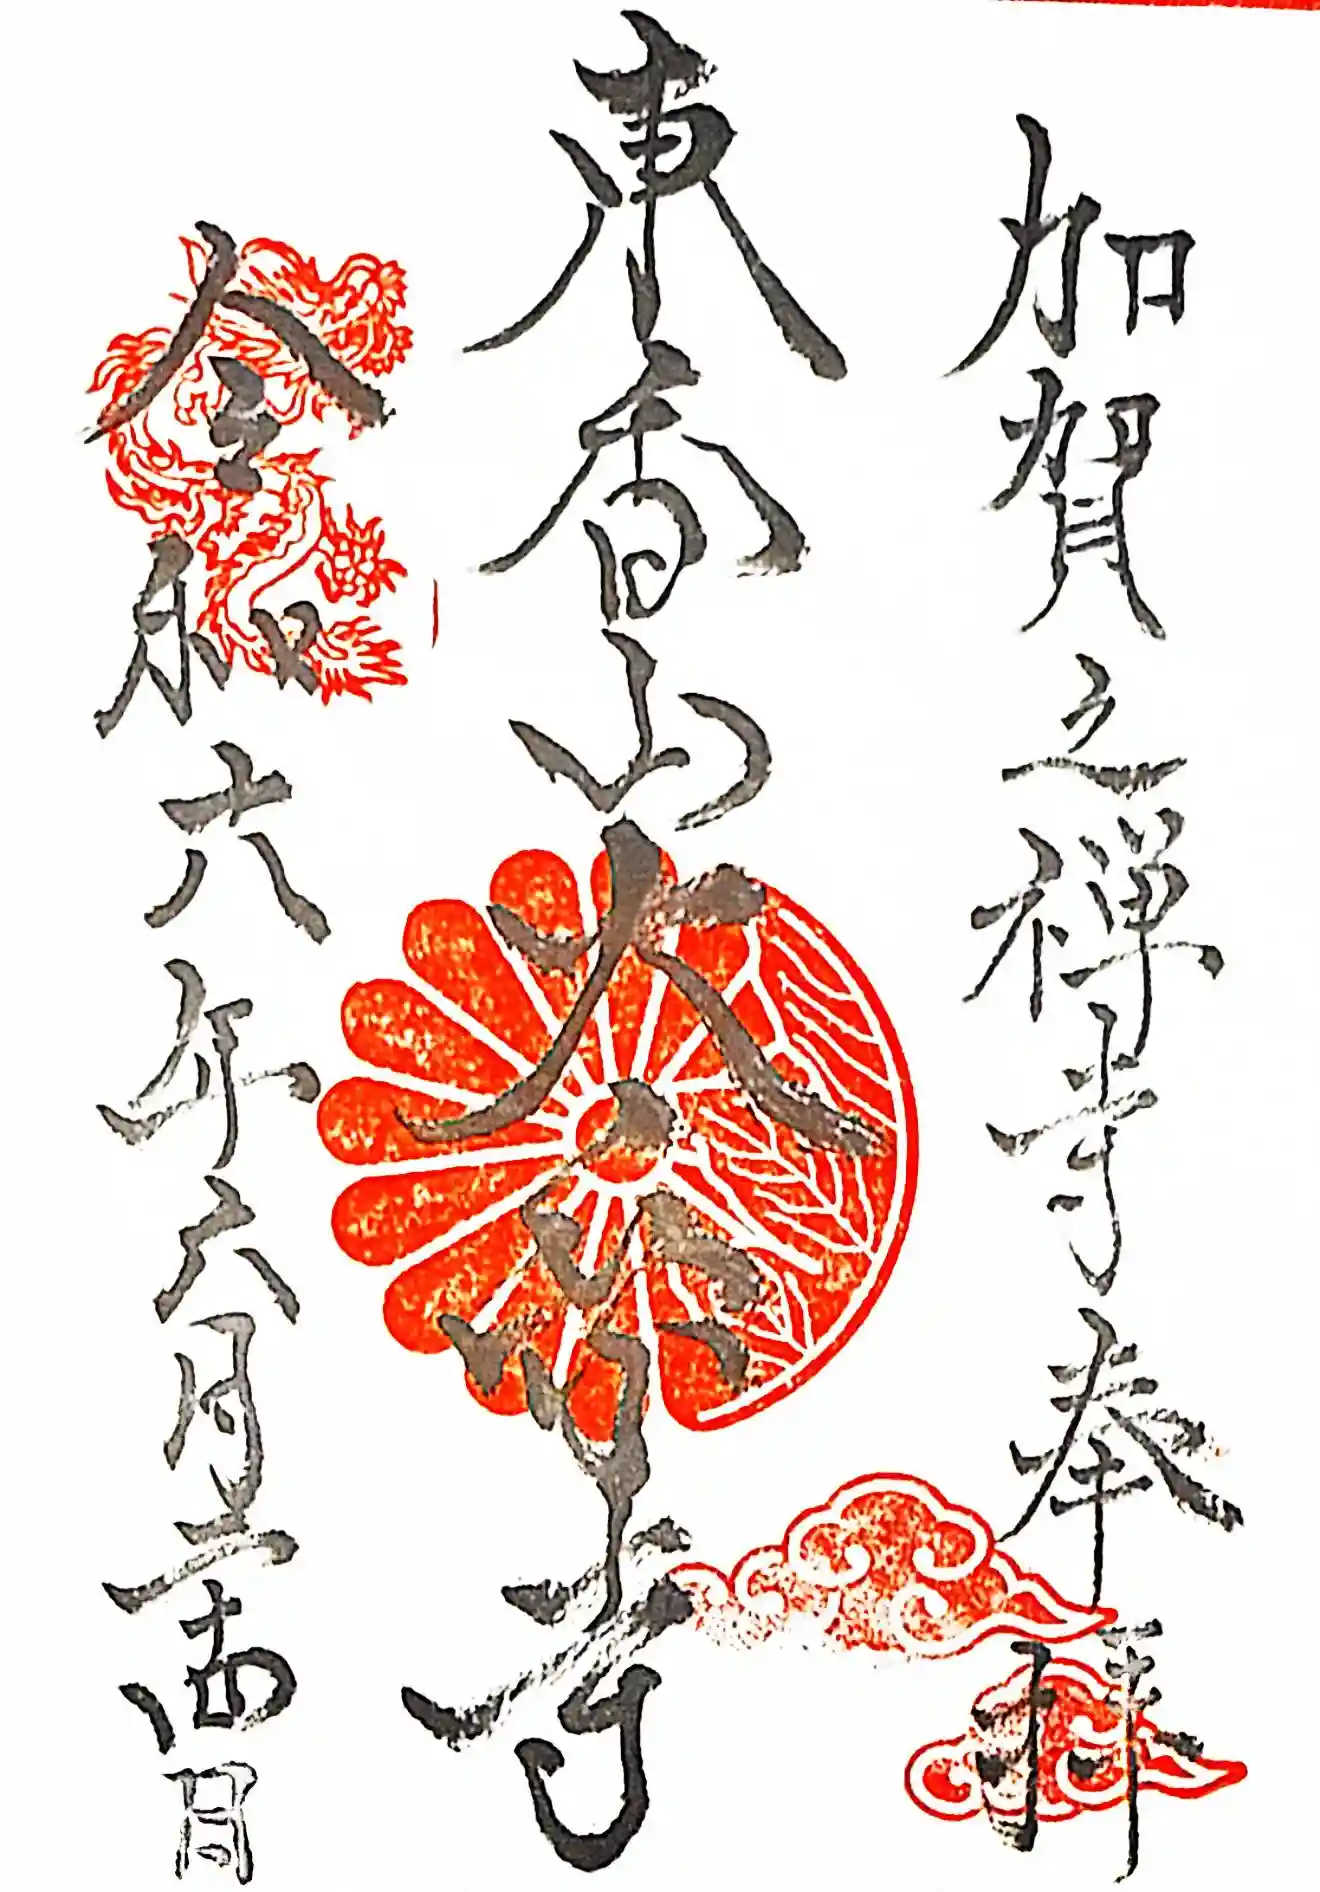 加賀之禅寺奉拝
東香山大乗寺
令和六年六月二十四日